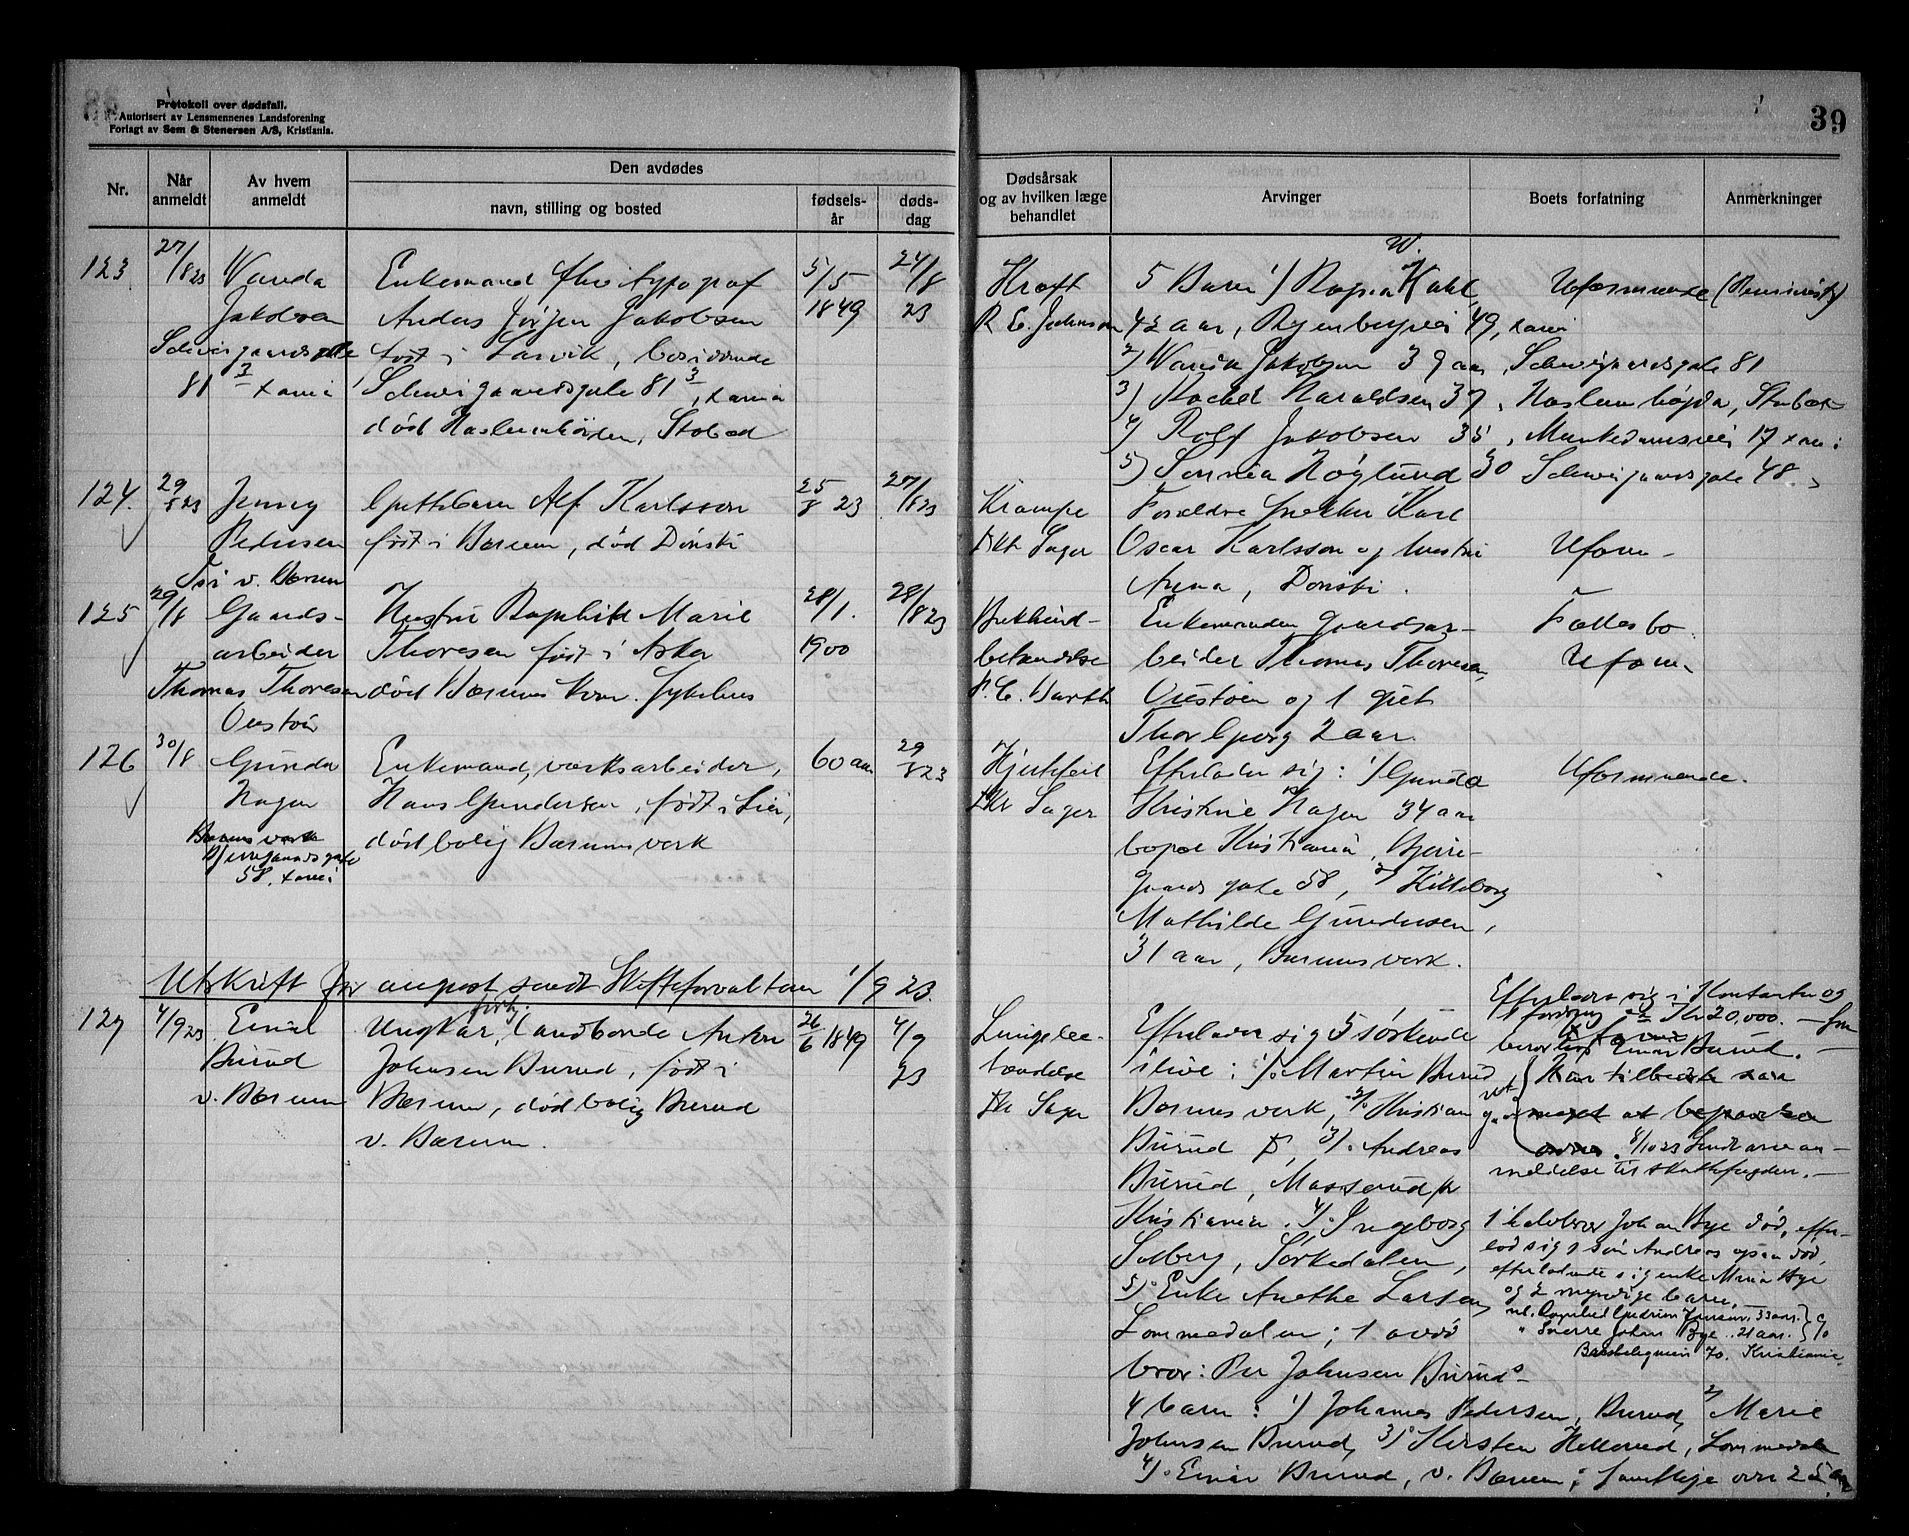 Protokoll over dødsfall.
Autorisert av Lensmennenes Landsforening
Forlagt av Sem & Stenersen A/S, Kristiania.
39
Nr.
Når anmeldt
Av hvem anmeldt
Den avdødes
navn, stilling og bosted
fødselsår
dødsdag
Dødsårsak og av hvilken læge behandlet
Arvinger
Boets forfatning
Anmerkninger
123
27/8 23
Wanda
Jakobsen
Schweigaardsgate
81 3 Xania
Enkemand fhv. typograf
Anders Jörgen Jakobsen
født i Larvik, boende
Schweigaardsgate 81 3, Xania
død Haslumhöiden, Stabæk
5/5
1849
24/8
23
Kræft
R. E. Johnson
5 Barn 1) Ragna W. Kahl
42 aar, Ryenbergvei 49, Xania
2) Wanda Jakobsen 39 aar, Schweigaardsgate 81
3) Rachel Haraldsen 37, Haslumhögda, Stabæk
4) Rolf Jakobsen 35, Munkedamsvei 17 Xania
5) Sonnia Höglund 30 Schweigaardsgate 48
Uformuende
124
29/8 23
Jenny
Pedersen
v. Bærum
Guttebarn Alf Karlsson
født i Bærum, død Dönski
25/8 23
27/8 23
Krampe
Dr Sager
Forældre Snekker Karl
Oscar Karlsson og hustru
Anna, Dönski.
Uform-
125
29/8
Gaards-
arbeider
Thomas Thoresen
Oustöen
Hustru Ragnhild Marie
Thoresen født i Asker
død Bærums kom. Sykehus
28/1.
1900
28/8 23
Bukhind-
betændelse
P. C. Barth
Enkemanden gaardsar-
beider Thomas Thoresen,
Oustöen og 1 gjet
Thorbjørg 2 aar.
Fællesbo
Uform.
126
30/8
Gunda
Hagen
Bærums verk
Bjerregaardsgate
58, Xania
Enkemand, verksarbeider,
Hans Gundersen, født i Lier,
død bolig Bærums verk
60 aar
29/8 23
Hjertefeil
Dr Sager
Efterlader sig: 1) Gunda
Kristine Hagen 34 aar
bopæl Kristiania, Bjerre-
gaards gate 58, 2)
Mathilde Gundersen,
31 aar, Bærums verk.
Uformuende.
Utskrift for august sendt Skifteforvalteren 1/9 23.
127
4/9 23
Einar
Burud
v. Bærum
Ungkar, forh. Landbonde Anton
Johnsen Burud, født i
Bærum, død bolig Burud
v. Bærum.
26/6 1849
4/9
23
Lungebe-
tændelse
Dr Sager
Efterlader sig 5 söskende
ilive: 1) Martin Burud
Bærums verk, 2) Kristian
Burud D, 3) Andreas
Burud, Masserud pr
Kristiania. 4) Ingeborg
Solberg, Sörkedalen,
5) Enke Anethe Larsen,
Lommedalen; 1 avdö
bror: Per Johnsen Buruds
4 barn: 1) Johannes Pedersen, Burud, 2) Marie
Johnsen Burud, 3) Kirsten Hellerud, Lommedalen
4) Einar Burud, v. Bærum; samtlige over 25 aar
Efterlader sig i Kontanter og
fordring Kr 20,000.
beror hos Einar Burud.
8/10 23 Sendt arvean-
meldelse til skattefogden.
1 halvbror Johan Bye död, efter-
lod sig 1 sön Andreas ogsaa död,
efterlatende sig enke Maria Bye
og 2 myndige barn,
nl. Ragnhild Gudrun Hansen 33 aar.
" Sverre Johan Bye 21 aar.
70. Kristiania.